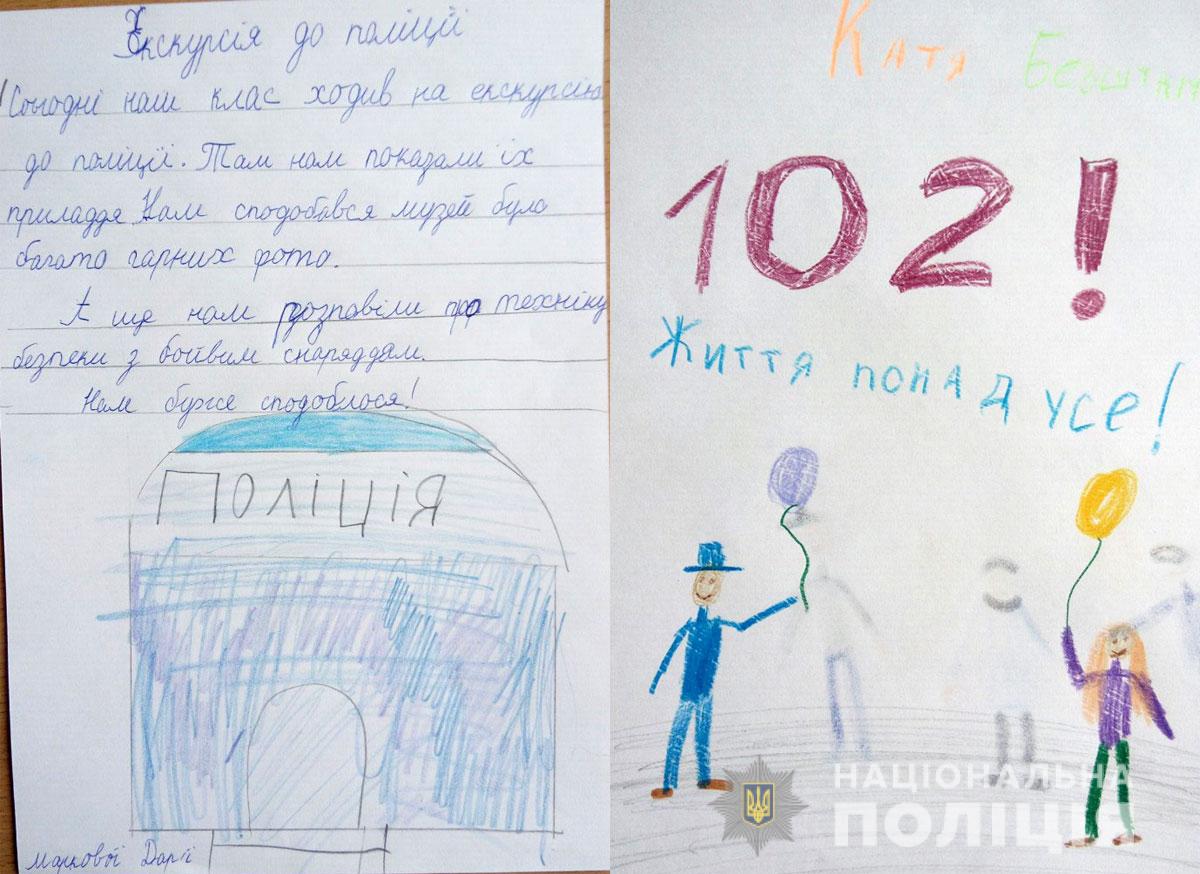 Екскурсія до поліції
Сьогодні наш клас ходив на екскурсію
до поліції. Там нам показали їх
приладдя Нам сподобався музей було
багато гарних фото.
А ще нам розповіли про техніку
безпеки з боївим снаряддям.
Нам дуже сподоблося!
Поліція
Маркової Дар'ї
Катя
102!
Життя понад усе!
НАЦІОНАЛЬНА
ПОЛІЦІЯ